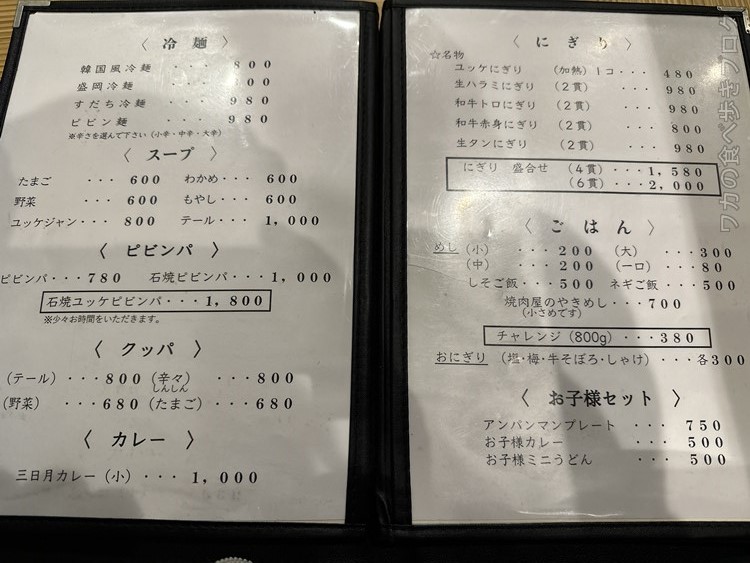 〈 冷麺 〉
韓国風冷麺 ・・・ 800
盛岡冷麺 ・・・ 00
すだち冷麺 ・・・ 980
ピビン麺 ・・・ 980
※辛さを選んで下さい（小辛・中辛・大辛）
〈 スープ 〉
たまご ・・・ 600 わかめ・・・ 600
野菜 ・・・ 600 もやし・・・ 600
ユッケジャン・・・ 800 テール・・・ 1,000
〈 ピビンパ 〉
ピビンパ・・・780 石焼ピビンパ・・・1,000
石焼ユッケピビンパ・・・1,800
※少々お時間をいただきます。
〈 クッパ 〉
（テール）・・・800 （辛々） ・・・800
しんしん
（野菜） ・・・680 （たまご）・・・680
〈 カレー 〉
三日月カレー（小）・・・ 1,000
〈 にぎり 〉
☆名物
ユッケにぎり （加熱）1コ・・・ 480
生ハラミにぎり （2貫） ・・・ 980
和牛トロにぎり （2貫） ・・・ 980
和牛赤身にぎり （2貫） ・・・ 800
生タンにぎり （2貫） ・・・ 980
にぎり 盛合せ （4貫）・・・1,580
（6貫）・・・2,000
〈 ごはん 〉
めし（小） ・・・200 （大） ・・・300
（中） ・・・200 （一口）・・・80
しそご飯・・・500 ネギご飯・・・500
焼肉屋のやきめし・・・700
（小さめです）
チャレンジ（800g）・・・380
おにぎり （塩・梅・牛そぼろ・しゃけ）・・・各300
〈 お子様セット 〉
アンパンマンプレート ・・・ 750
お子様カレー ・・・ 500
お子様ミニうどん ・・・ 500
ワカの食べ歩きブログ